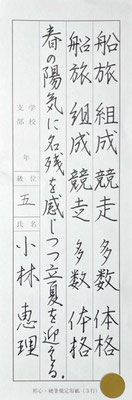 船旅 組成 競走 多数 体格
船旅 組成 競走 多数 体格
春の陽気に名残を感じつつ立夏を迎える。
学校
支部
年
級位
五
氏名
小林 恵理
硬筆規定用紙